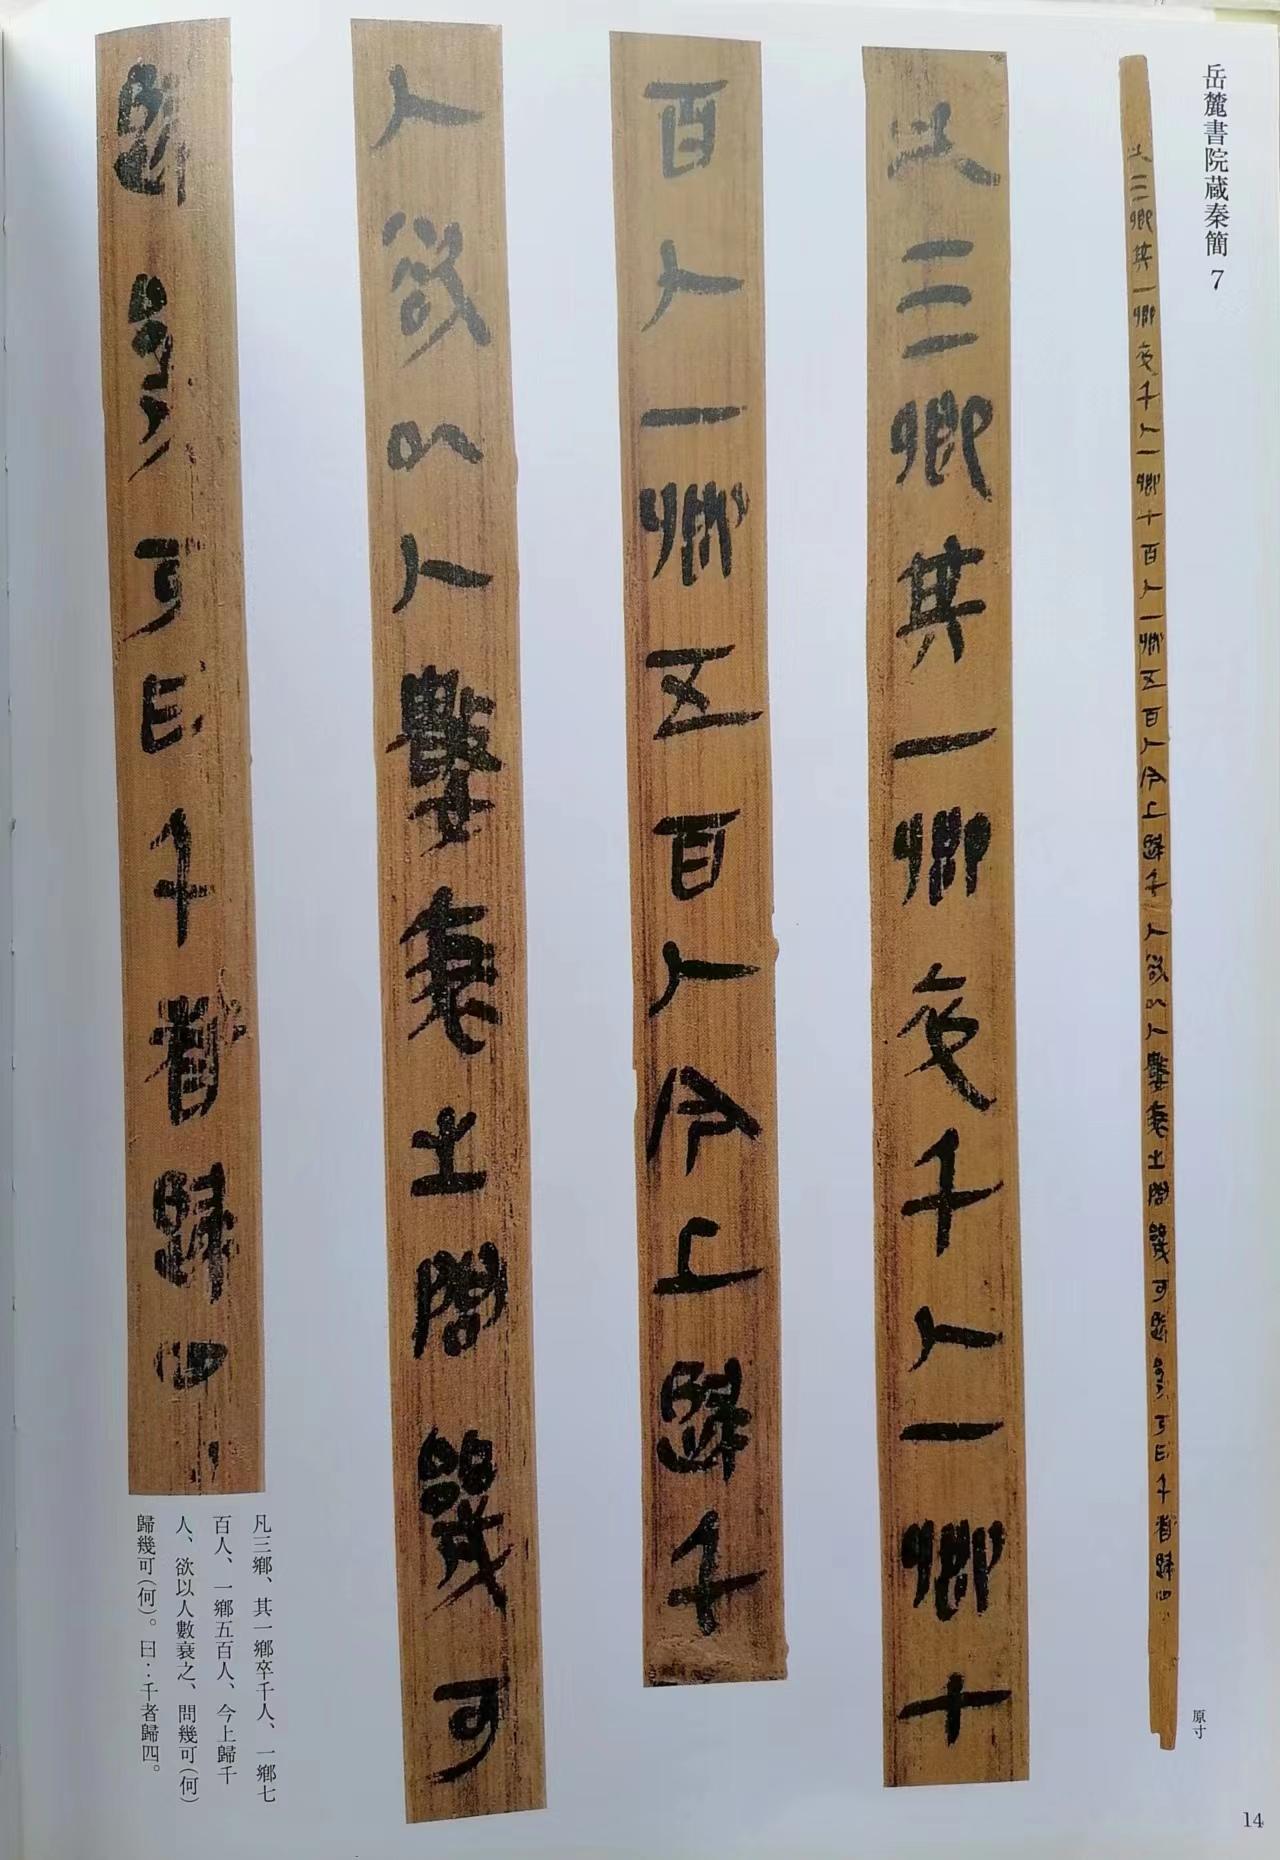 岳麓書院蔵秦簡 7
凡三鄉其一鄉卒千人一鄉七百人一鄉五百人今上歸千人欲以人數衰之問幾可歸幾可曰千者歸四
原寸
凡三鄉其一鄉卒千人一鄉七
百人一鄉五百人今上歸千
人欲以人數衰之問幾可
歸幾可曰千者歸四
凡三鄉、其一鄉卒千人、一鄉七
百人、一鄉五百人、今上歸千
人、欲以人數衰之、問幾可(何)
歸幾可(何)。曰‥千者歸四。
14